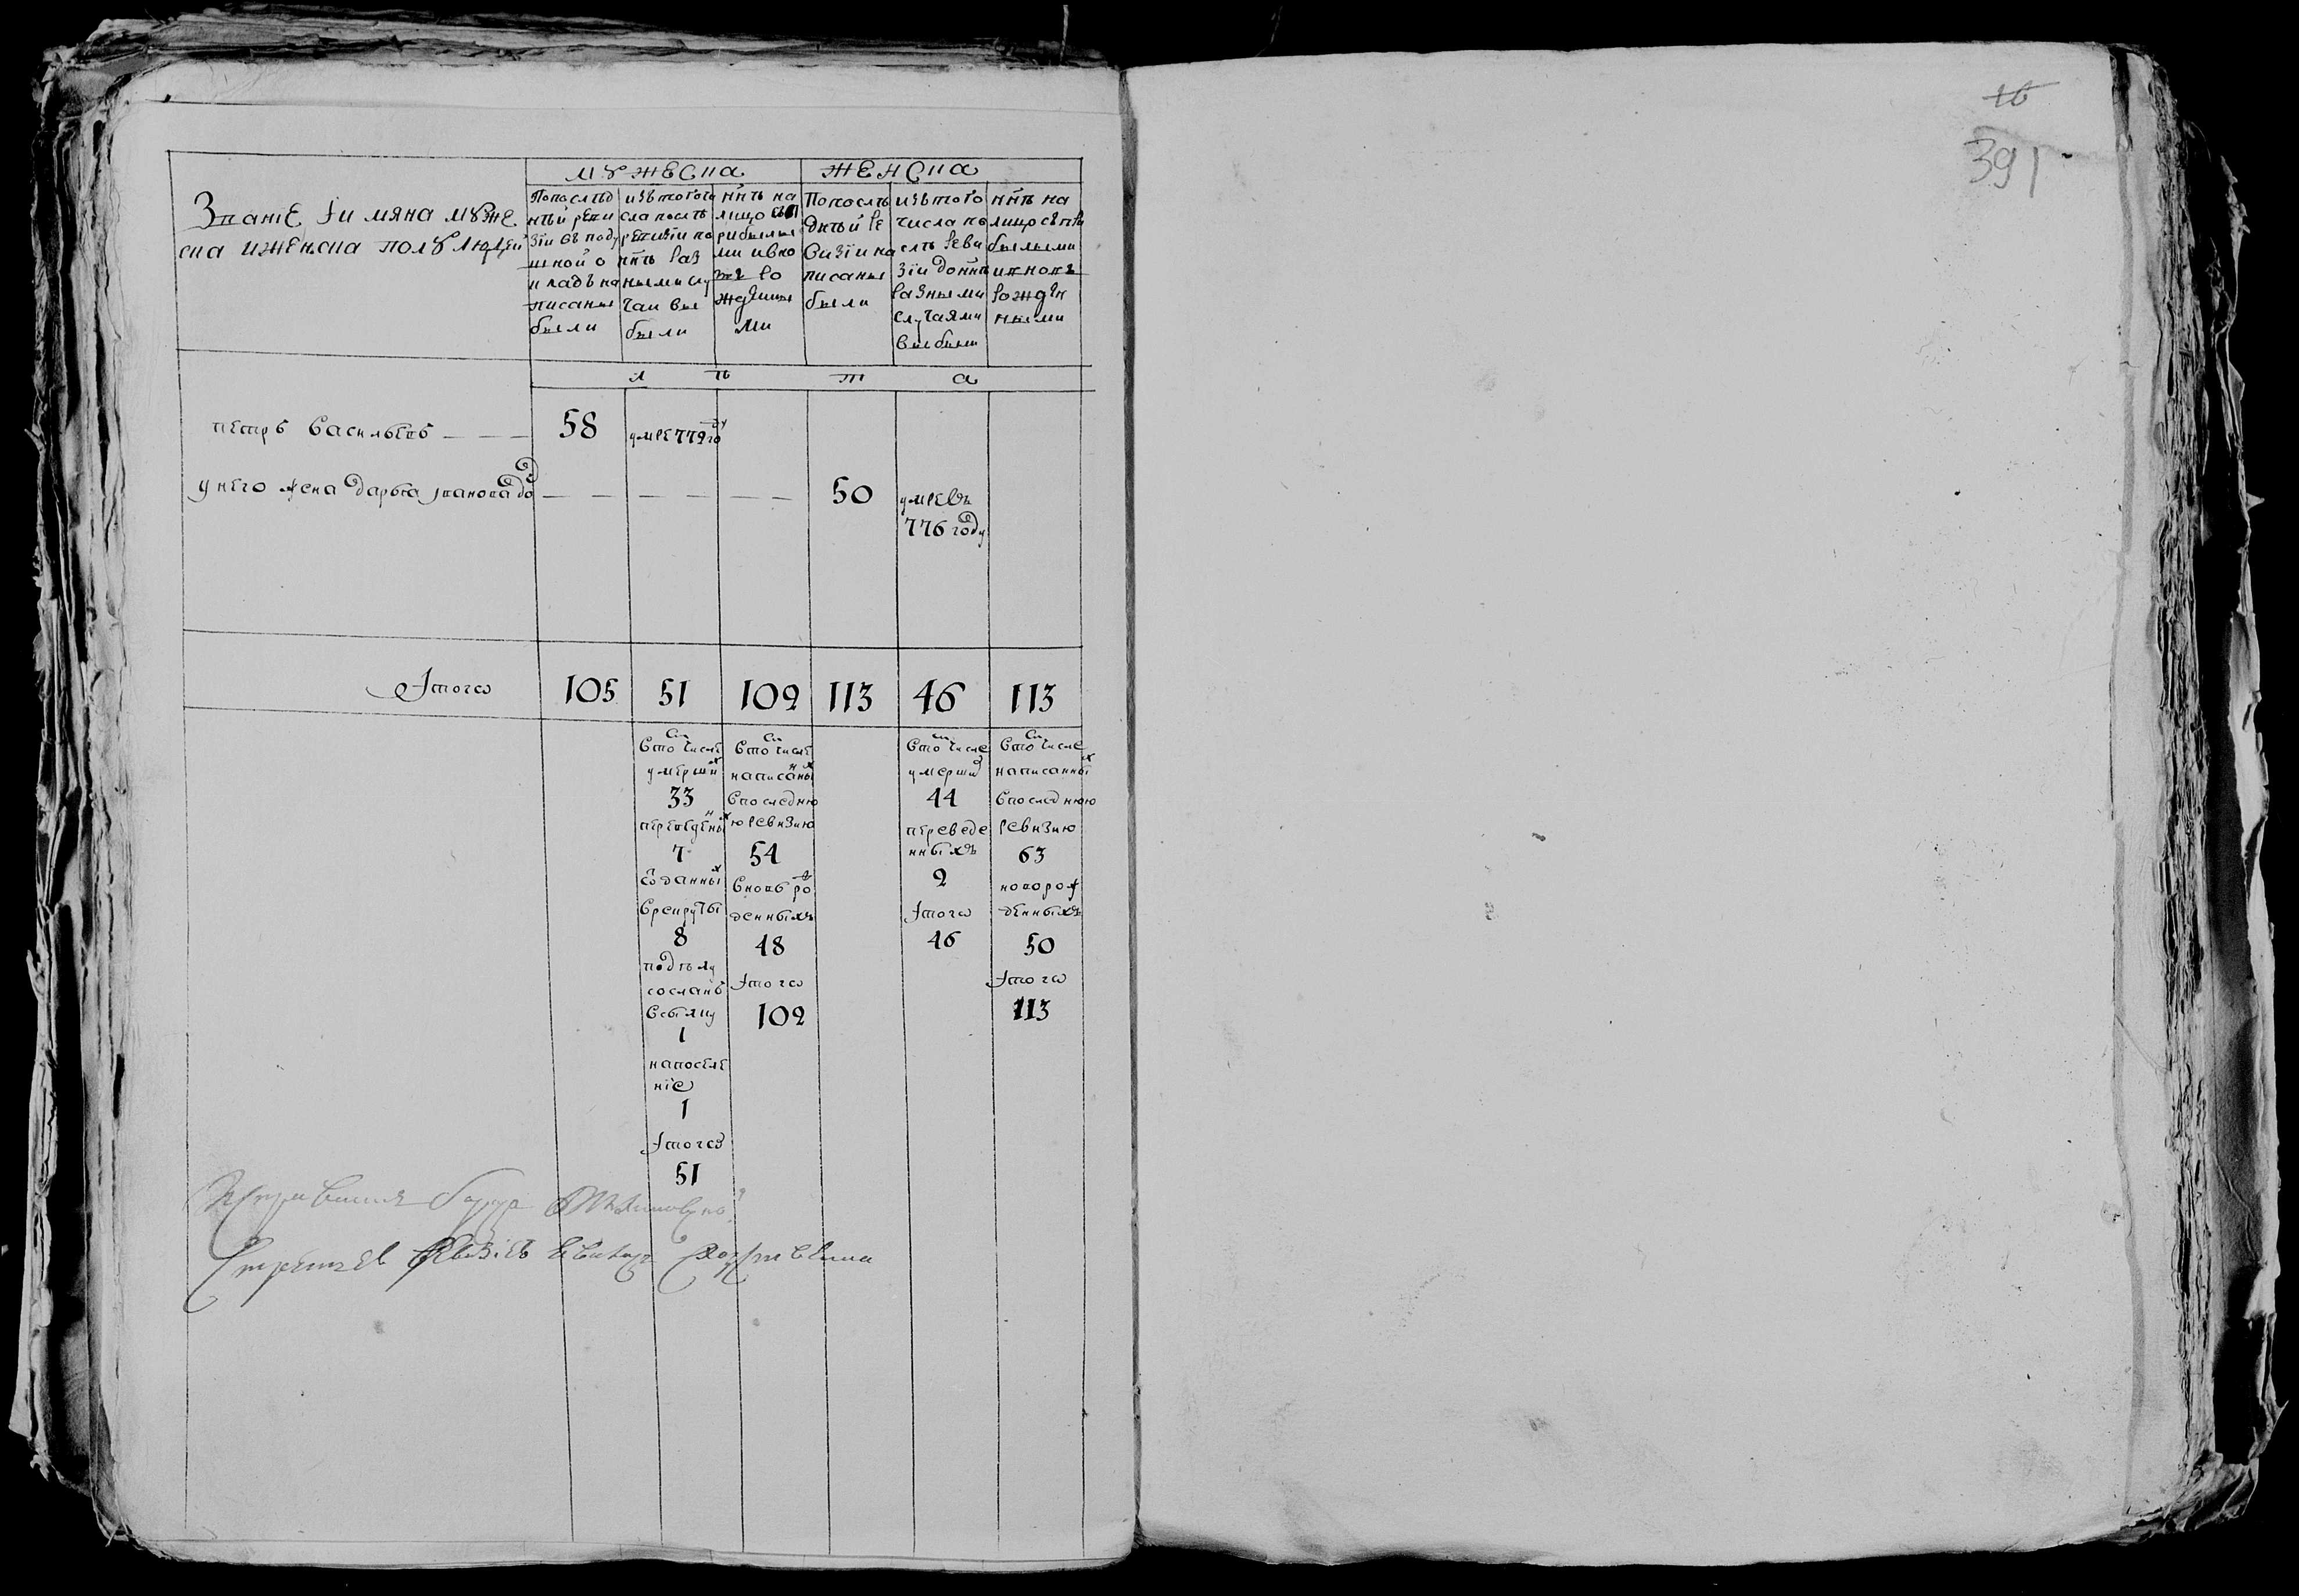 16
391
МУЖЕСКА ЖЕНСКА
Званiе Iимяна муже
ска иженска полу людей
Попослѣд
нѣй реви
зiи въ поду
шной о
кладъ на
писаны
были
изътогочи
сла послѣ
ревизiи по
ннѣ раз
ными слу
чаи вы
были
ннѣ на
лицо съп
рибылы
ми ивно
вь ро
жденны
ми
Попослѣ
днѣй ре
визiи на
писаны
были
изътого
числа по
слѣ реви
зiи доннѣ
разными
случаями
выбыли
ннѣ на
лицо спри
былыми
ивновь
рожден
ными
л ѣ т а
петръ васильевъ 58 умре 772 году
унего жена дарья 50 умре въ
776 году
Iтого 105 51 102 113 46 113
Втом числе
умерших
33
переведеных
7
Отданных
Врекруты
8
сосланъ
Всылку
1
напоселе
нiе
1
Iтого
51
Втом числе
написаных
Впоследню
ю ревизию
54
Вновь рож
денныхъ
48
Iтого
102
Втом числе
умерших
44
переведе
нныхъ
2
Iтого
46
Втом числе
написанных
Впоследнюю
ревизию
63
новорож
денныхъ
50
Iтого
113